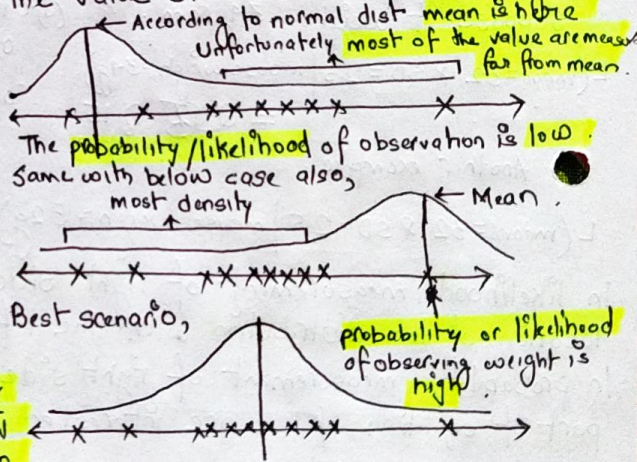 the value
According to normal dist mean is here
Unfortunately most of the value are measur
far from mean.
The probability/likelihood of observation is low.
Same with below case also,
most density
Mean.
Best scenario,
probability or likelihood
of observing weight is
high.